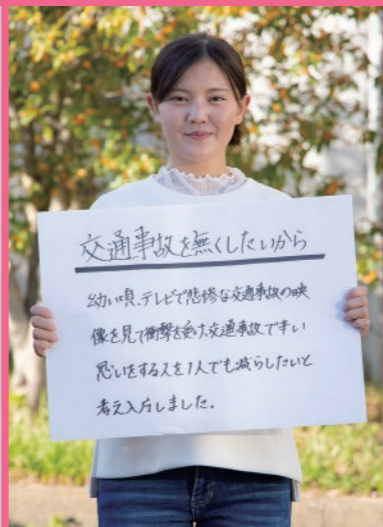 交通事故を無くしたいから
幼い頃、テレビで悲惨な交通事故の映
像を見て衝撃を受け、交通事故で辛い
思いをする人を1人でも減らしたいと
考え入庁しました。